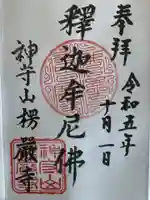 奉拝
令和五年
十月一日
釋迦牟尼佛
神守山楞嚴寺